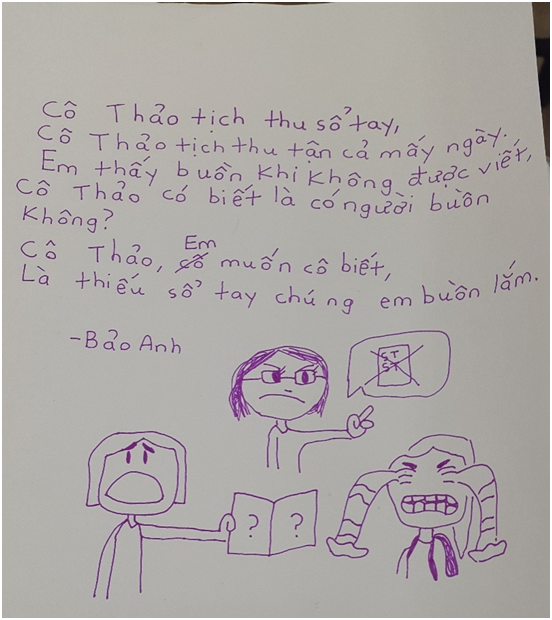 Cô Thảo tịch thu sổ tay,
Cô Thảo tịch thu tận cả mấy ngày.
Em thấy buồn khi không được viết,
Cô Thảo có biết là có người buồn
không?
Cô Thảo, cô Em muốn cô biết,
Là thiếu sổ tay chúng em buồn lắm.
-Bảo Anh
ST
ST
? ?